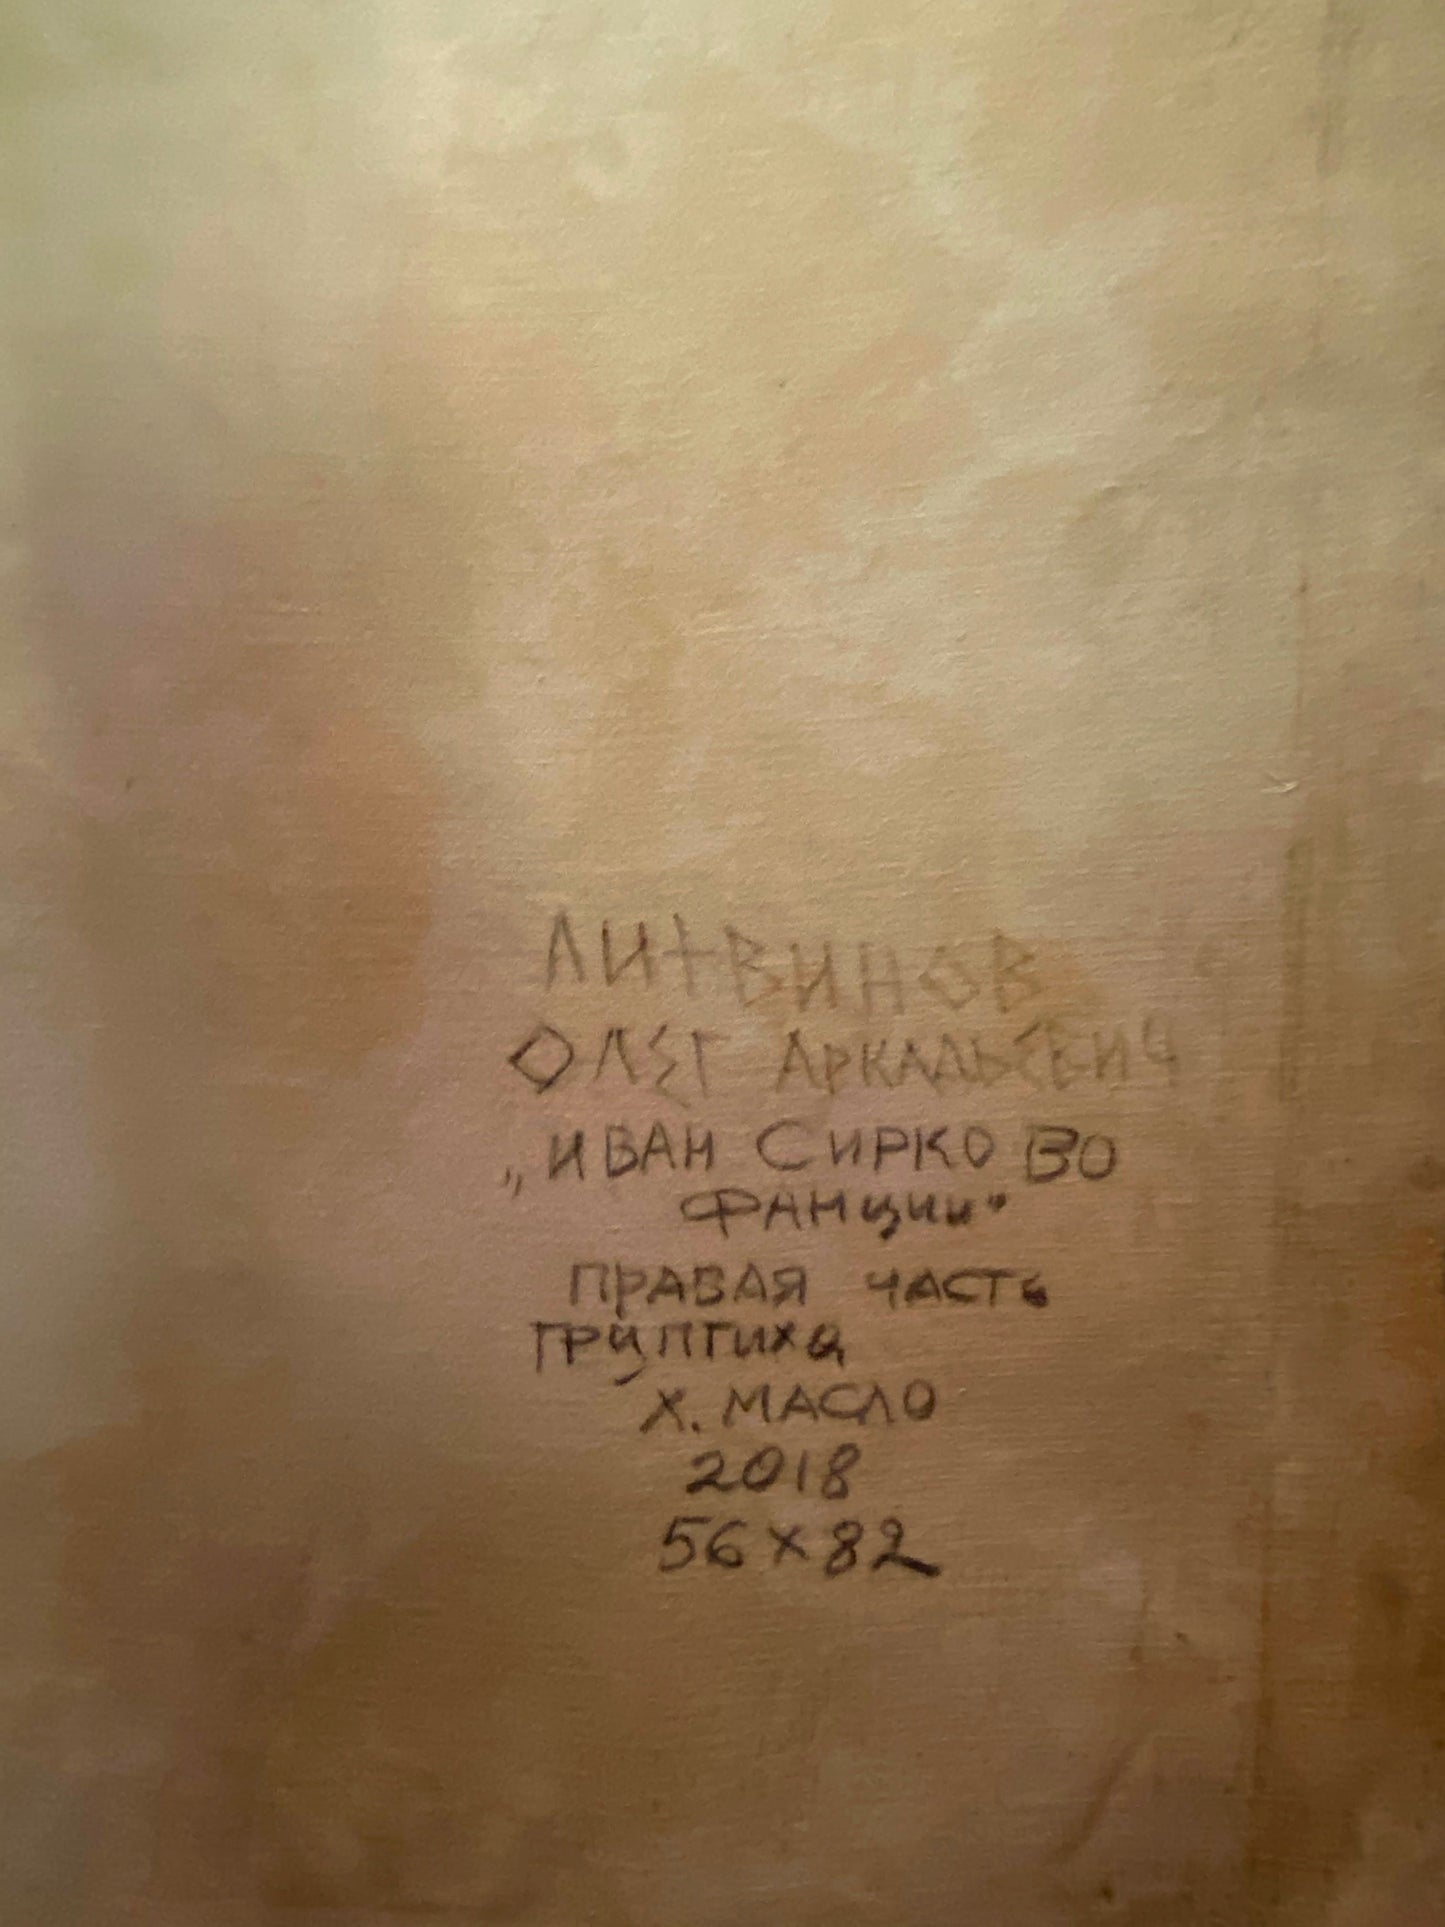 ЛИТВИНОВ
ОЛЕГ АРКАДЬЕВИЧ
„ИВАН СИРКО ВО
ФАНЦИИ"
ПРАВАЯ ЧАСТЬ
ТРИПТИХА
Х. МАСЛО
2018
56 x 82